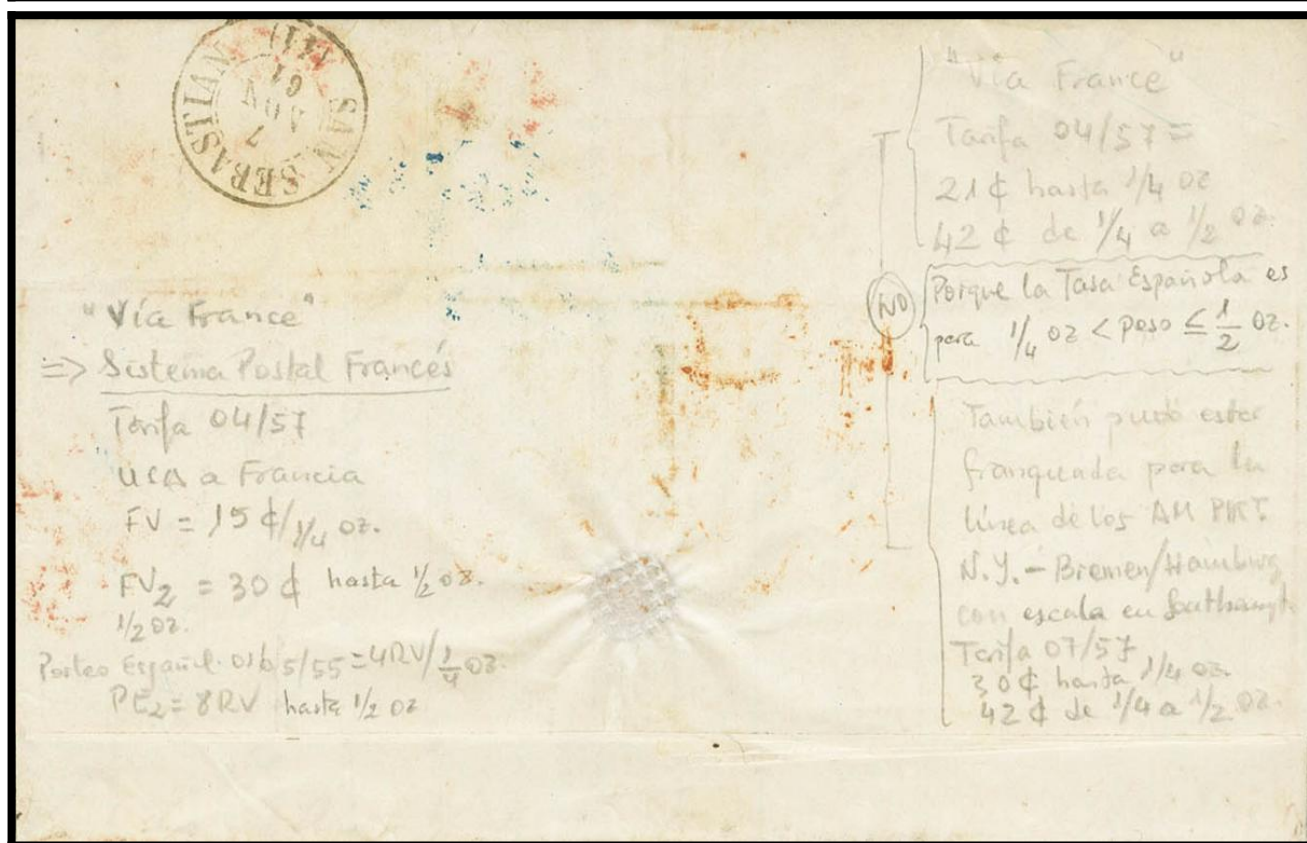 SAN SEBASTIAN
7
NOV
61
"Vía France"
=> Sistema Postal Francés
Tarifa 04/57
USA a Francia
FV = 15 ¢/1/4 oz.
FV2 = 30 ¢ hasta 1/2 oz.
1/2 oz.
Porteo Español 5/55 = 4RV/1/4 oz.
PE2 = 8RV hasta 1/2 oz
"Vía France"
Tarifa 04/57 =
21 ¢ hasta 1/4 oz
42 ¢ de 1/4 a 1/2 oz.
NO
Porque la Tasa Española es
para 1/4 oz < peso ≤ 1/2 oz.
También pudo estar
franqueada para la
línea de los AM PKT.
N.Y. – Bremen/Hamburg
con escala en Southampt.
Tarifa 07/57
30 ¢ hasta 1/4 oz.
42 ¢ de 1/4 a 1/2 oz.